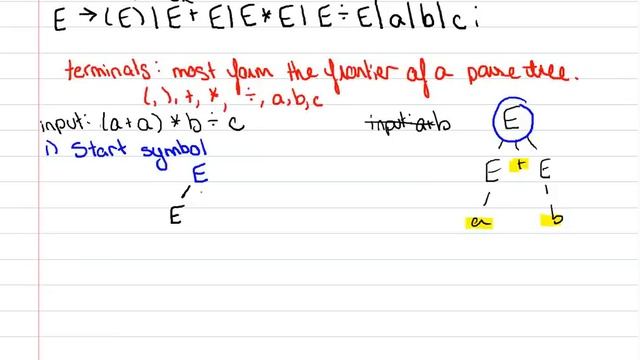 E → (E) | E + E | E * E | E ÷ E | a | b | c ;
terminals: most form the frontier of a parse tree.
(, ), +, *, ÷, a, b, c
input: (a+a) * b ÷ c
input: a+b
1) Start symbol
E
E
E
E + E
a b